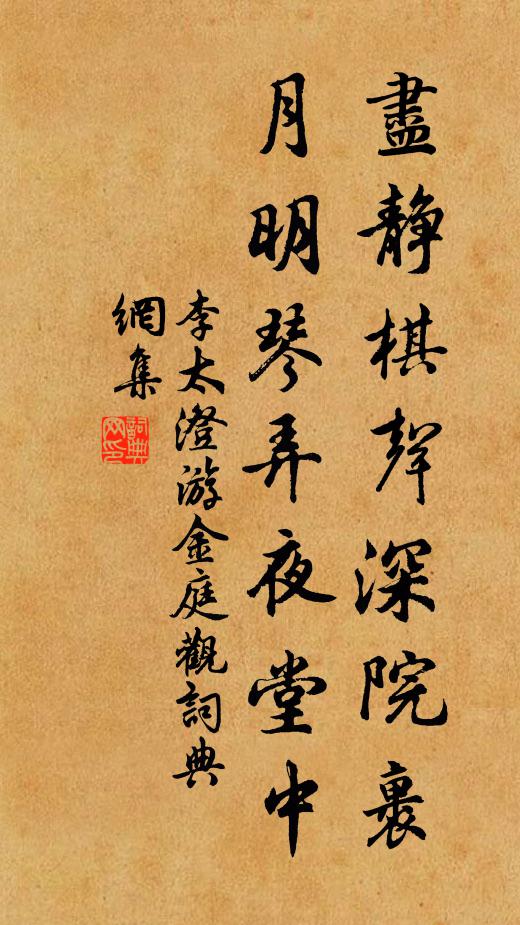 盡靜棋聲深院裏
月明琴弄夜堂中
李太澄游金庭觀詞典
網集
詞典
网印